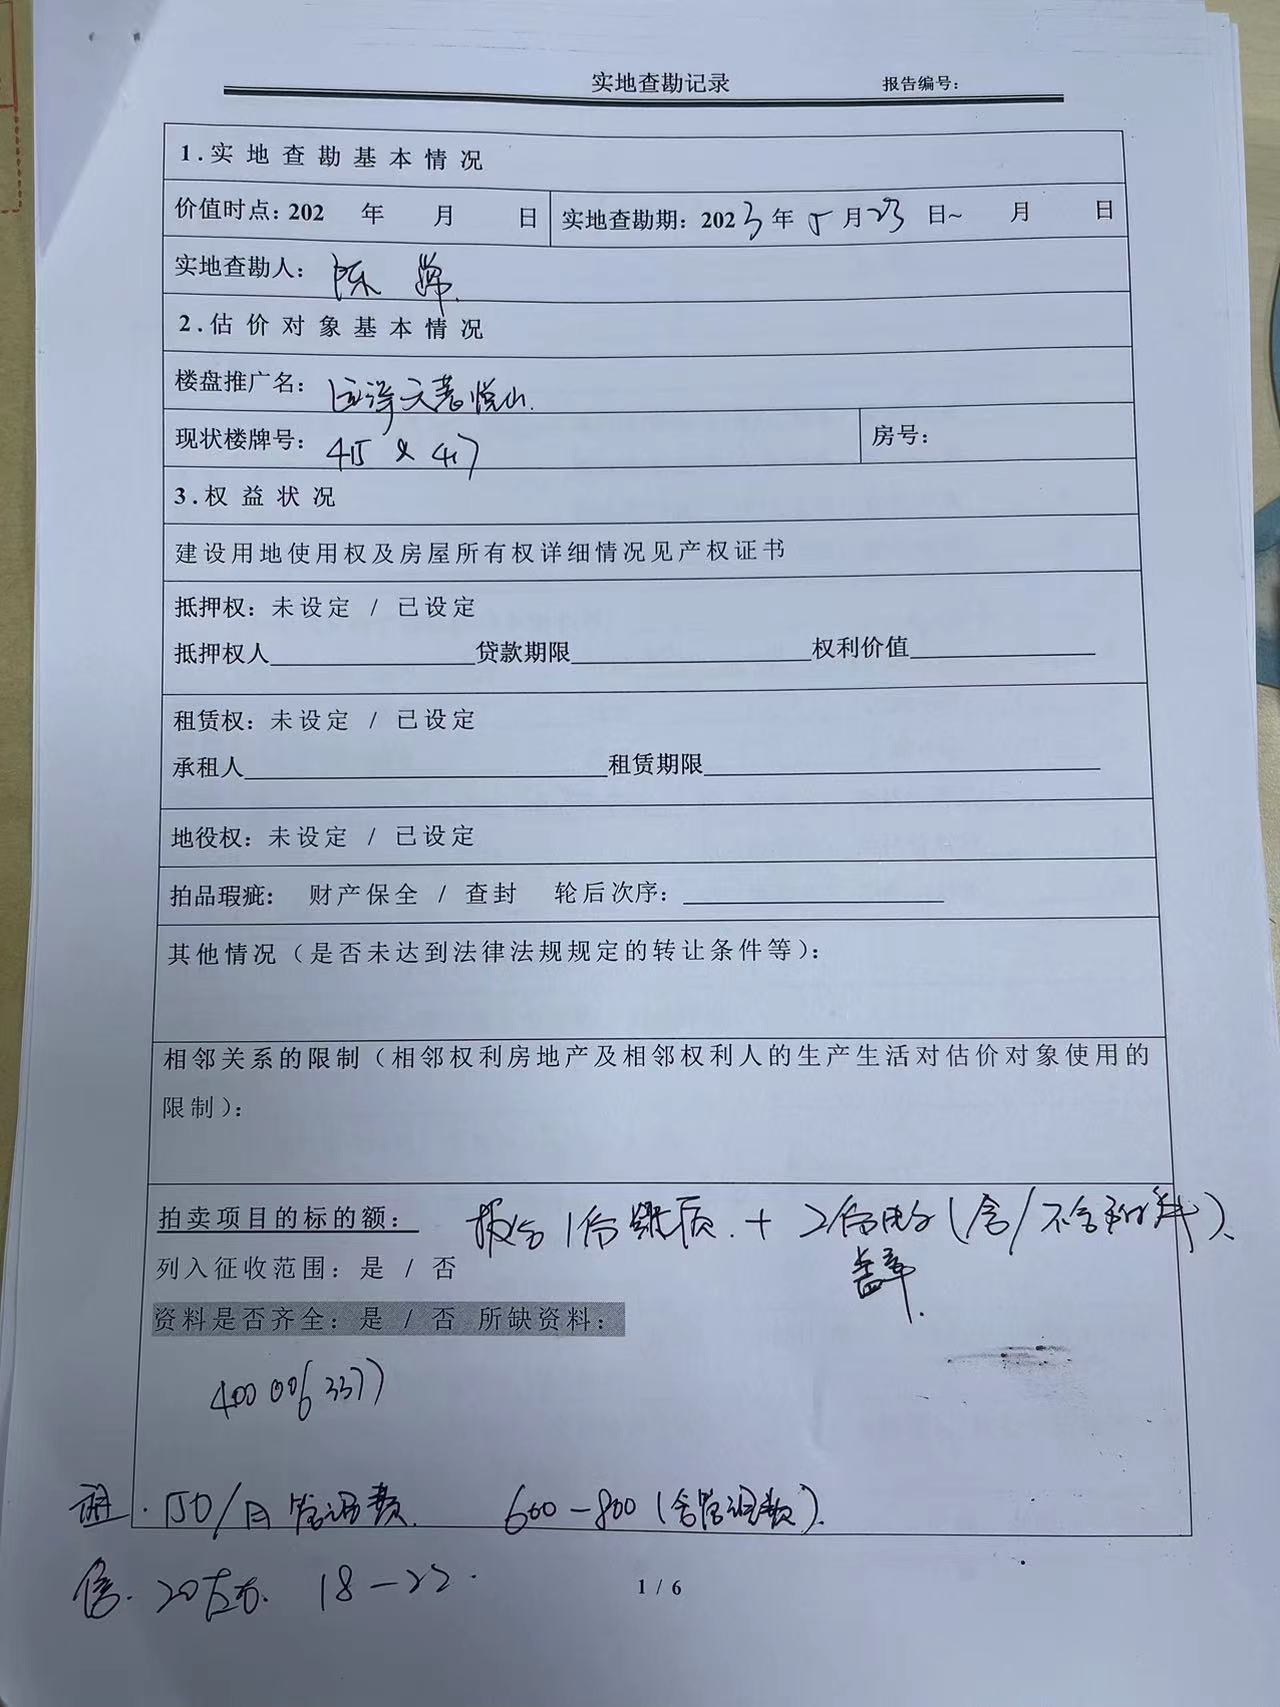 实地查勘记录 报告编号：
1.实地查勘基本情况
价值时点：202 年 月 日 实地查勘期：2023年5月23日~ 月 日
实地查勘人：陈
2.估价对象基本情况
楼盘推广名：天荟悦山.
现状楼牌号：415 & 417 房号：
3.权益状况
建设用地使用权及房屋所有权详细情况见产权证书
抵押权：未设定 / 已设定
抵押权人 贷款期限 权利价值
租赁权：未设定 / 已设定
承租人 租赁期限
地役权：未设定 / 已设定
拍品瑕疵： 财产保全 / 查封 轮后次序：
其他情况（是否未达到法律法规规定的转让条件等）：
相邻关系的限制（相邻权利房地产及相邻权利人的生产生活对估价对象使用的
限制）：
拍卖项目的标的额： 报告1份纸质. + 2份电子(含/不含)、
盖章.
列入征收范围：是 / 否
资料是否齐全：是 / 否 所缺资料：
400 006 3377
150/月 管理费. 600-800(含管理费).
售. 20左右. 18-22.
1 / 6